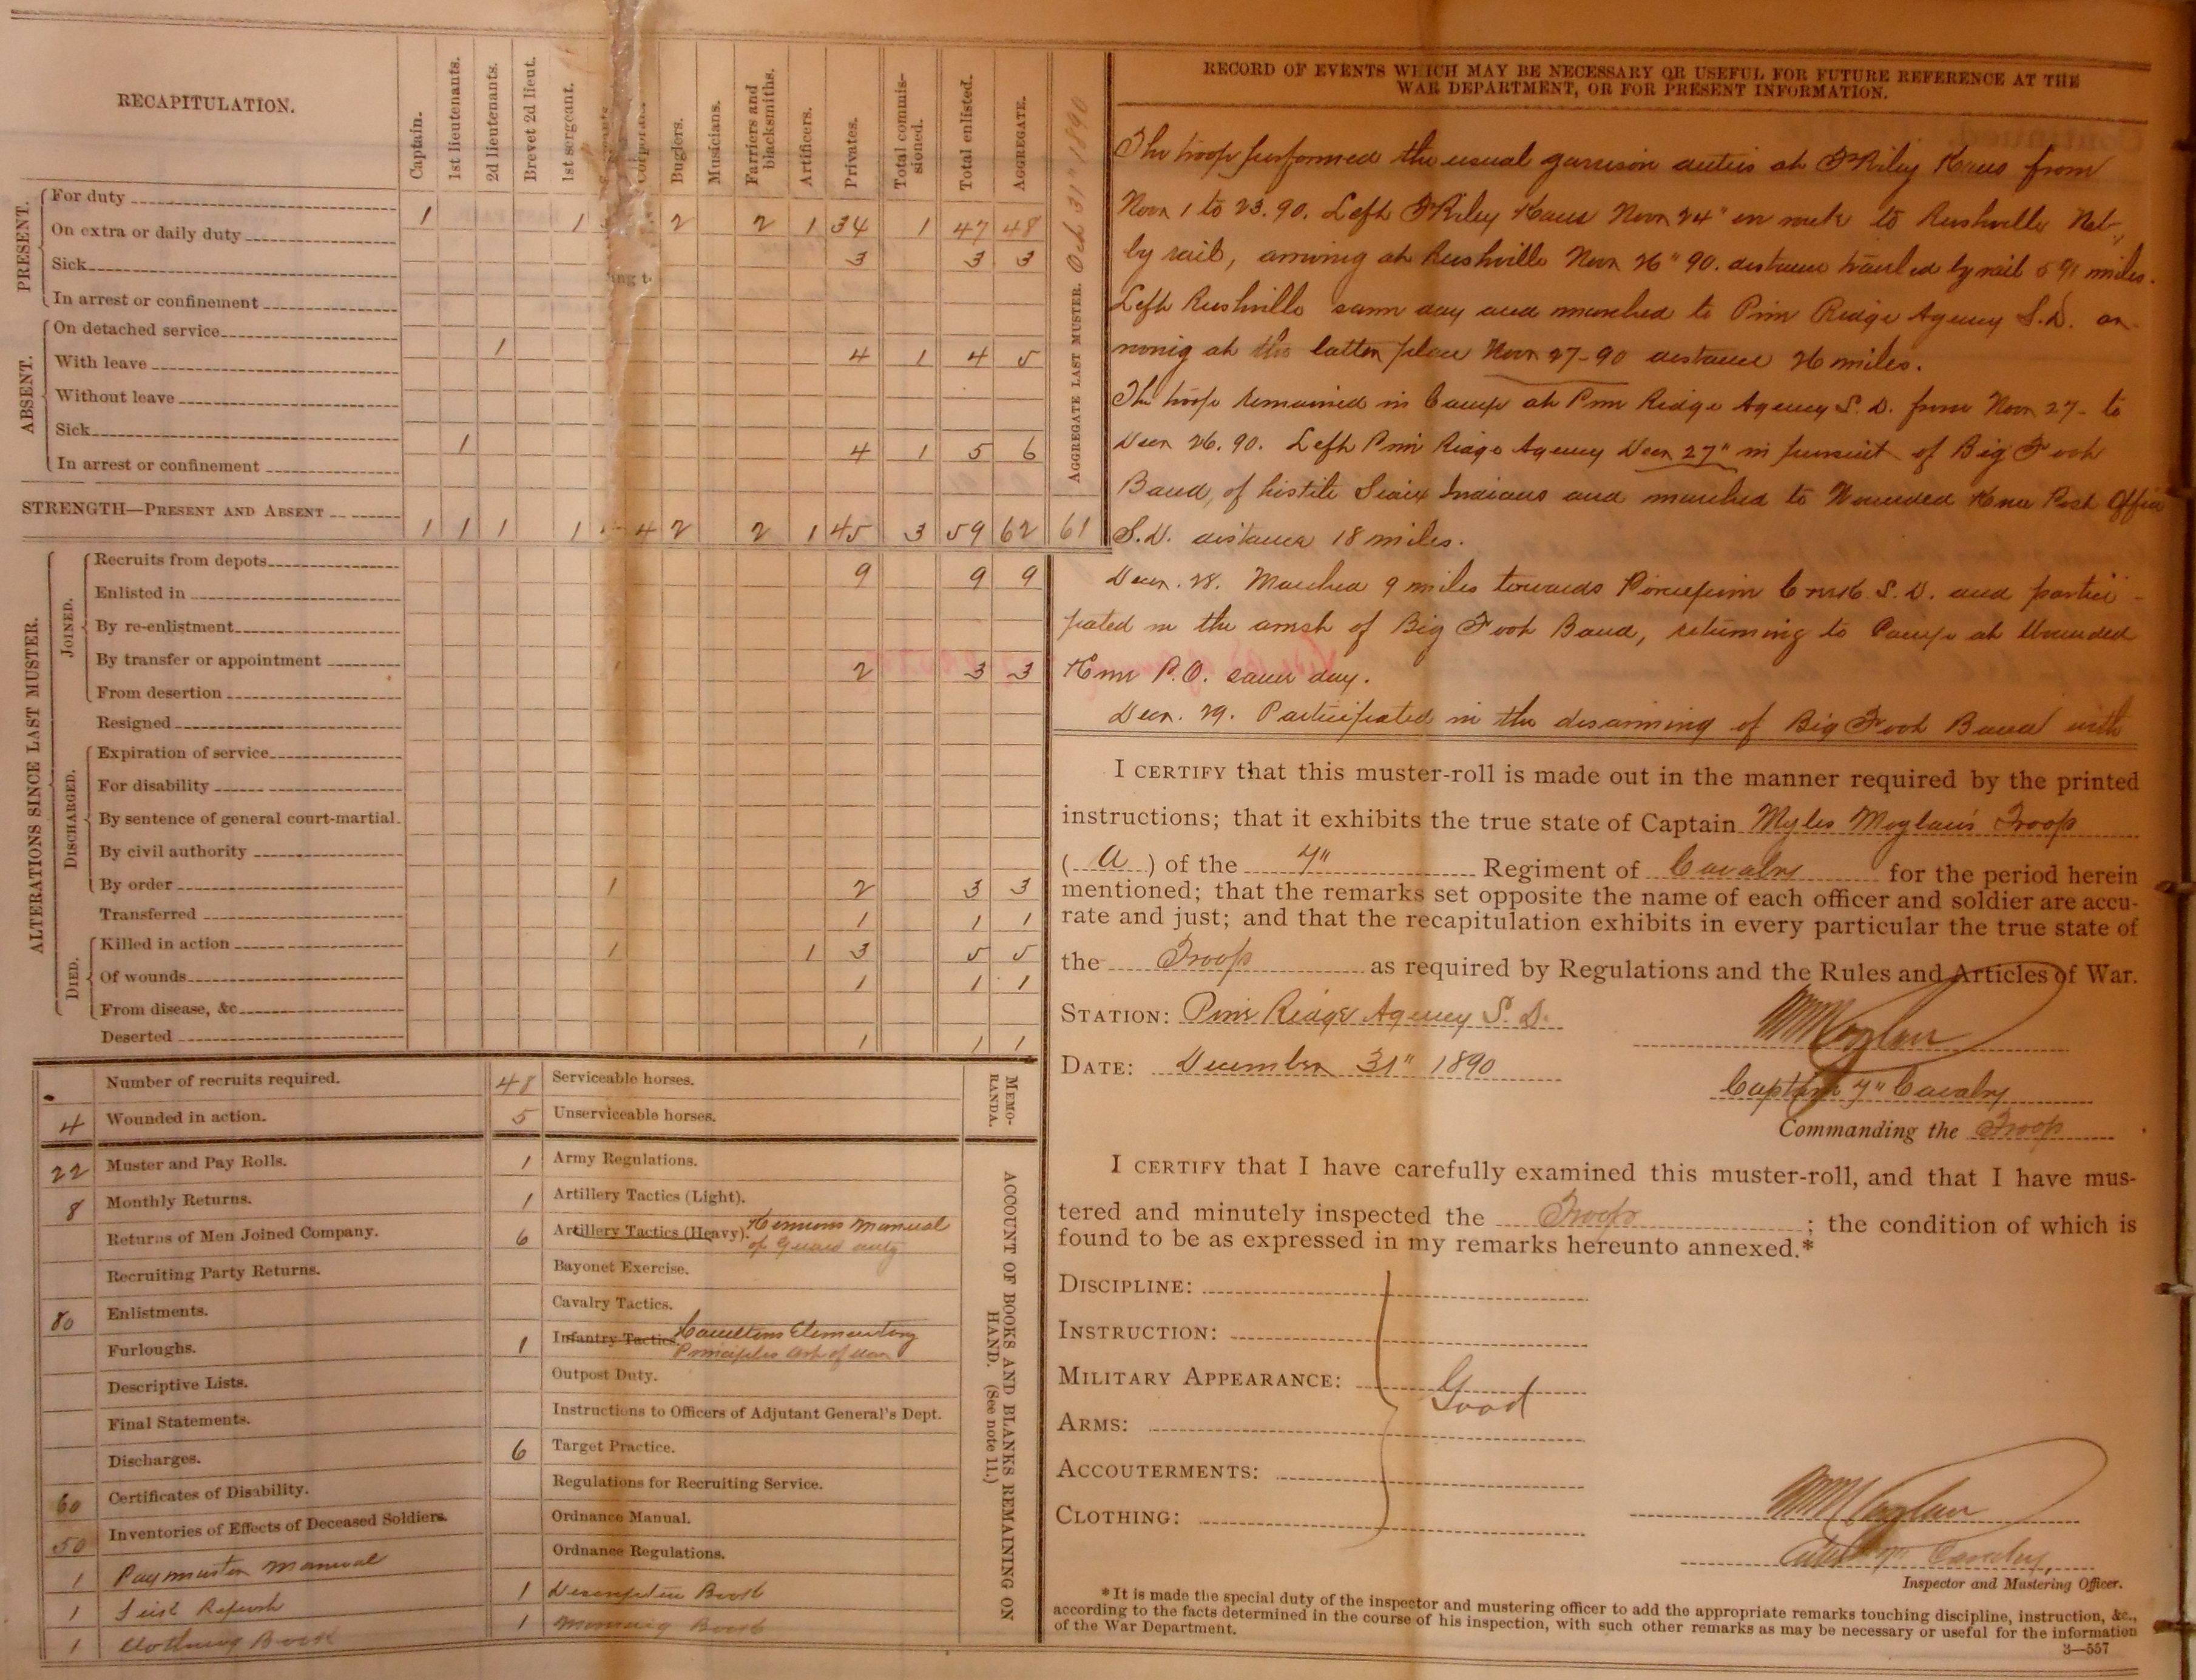 RECAPITULATION.
Captain.
1st lieutenants.
2d lieutenants.
Brevet 2d lieut.
1st sergeant.
Corporals.
Buglers.
Musicians.
Farriers and blacksmiths.
Artificers.
Privates.
Total commissioned.
Total enlisted.
AGGREGATE.
AGGREGATE LAST MUSTER. Oct 31" 1890
PRESENT.
For duty 1 1 2 2 1 34 1 47 48
On extra or daily duty 3 3 3
Sick
In arrest or confinement
ABSENT.
On detached service 1 4 1 4 5
With leave
Without leave
Sick 1 4 1 5 6
In arrest or confinement
STRENGTH—PRESENT AND ABSENT 1 1 1 1 4 2 2 1 45 3 59 62 61
ALTERATIONS SINCE LAST MUSTER.
JOINED.
Recruits from depots 9 9 9
Enlisted in
By re-enlistment
By transfer or appointment 1 2 3 3
From desertion
Resigned
DISCHARGED.
Expiration of service
For disability
By sentence of general court-martial.
By civil authority
By order 1 2 3 3
Transferred 1 1 1
DIED.
Killed in action 1 1 3 5 5
Of wounds 1 1 1
From disease, &c
Deserted 1 1 1
Number of recruits required.
4 Wounded in action.
48 Serviceable horses.
5 Unserviceable horses.
MEMORANDA.
22 Muster and Pay Rolls.
8 Monthly Returns.
Returns of Men Joined Company.
Recruiting Party Returns.
80 Enlistments.
Furloughs.
Descriptive Lists.
Final Statements.
Discharges.
60 Certificates of Disability.
50 Inventories of Effects of Deceased Soldiers.
1 Paymaster Manual
1 Sick Report
1 Clothing Book
1 Army Regulations.
1 Artillery Tactics (Light).
6 Artillery Tactics (Heavy). Kennons Manual
of Guard duty
Bayonet Exercise.
Cavalry Tactics.
1 Infantry Tactics. Elementary
Principles Art of War
Outpost Duty.
Instructions to Officers of Adjutant General's Dept.
6 Target Practice.
Regulations for Recruiting Service.
Ordnance Manual.
Ordnance Regulations.
1 Descriptive Book
1 Morning Book
ACCOUNT OF BOOKS AND BLANKS REMAINING ON
HAND. (See note 11.)
RECORD OF EVENTS WHICH MAY BE NECESSARY OR USEFUL FOR FUTURE REFERENCE AT THE
WAR DEPARTMENT, OR FOR PRESENT INFORMATION.
The troop performed the usual garrison duties at Ft Riley Kans from
Novr 1 to 23. 90. Left Ft Riley Kans Novr 24" en route to Rushville Neb.,
by rail, arriving at Rushville Novr 26" 90. distance traveled by rail 591 miles.
Left Rushville same day and marched to Pine Ridge Agency S.D. ar-
riving at the latter place Novr 27-90 distance 26 miles.
The troop remained in Camp at Pine Ridge Agency S.D. from Novr 27- to
Decr 26. 90. Left Pine Ridge Agency Decr 27" in pursuit of Big Foot
Band, of hostile Sioux Indians and marched to Wounded Knee Post Office
S.D. distance 18 miles.
Decr. 28. Marched 9 miles towards Porcupine Creek S.D. and partici-
pated in the arrest of Big Foot Band, returning to Camp at Wounded
Knee P.O. same day.
Decr. 29. Participated in the disarming of Big Foot Band with
I CERTIFY that this muster-roll is made out in the manner required by the printed
instructions; that it exhibits the true state of Captain Myles Moylan's Troop
(A) of the 7" Regiment of Cavalry for the period herein
mentioned; that the remarks set opposite the name of each officer and soldier are accu-
rate and just; and that the recapitulation exhibits in every particular the true state of
the Troop as required by Regulations and the Rules and Articles of War.
STATION: Pine Ridge Agency S.D.
DATE: December 31" 1890
M Moylan
Captain 7" Cavalry
Commanding the Troop
I CERTIFY that I have carefully examined this muster-roll, and that I have mus-
tered and minutely inspected the Troop; the condition of which is
found to be as expressed in my remarks hereunto annexed.*
DISCIPLINE:
INSTRUCTION:
MILITARY APPEARANCE: Good
ARMS:
ACCOUTERMENTS:
CLOTHING:
M Moylan
Capt 7" Cavalry,
Inspector and Mustering Officer.
*It is made the special duty of the inspector and mustering officer to add the appropriate remarks touching discipline, instruction, &c.,
according to the facts determined in the course of his inspection, with such other remarks as may be necessary or useful for the information
of the War Department.
3—557